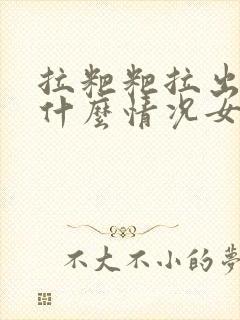 拉粑粑拉出
什麼情況女
不大不小的夢